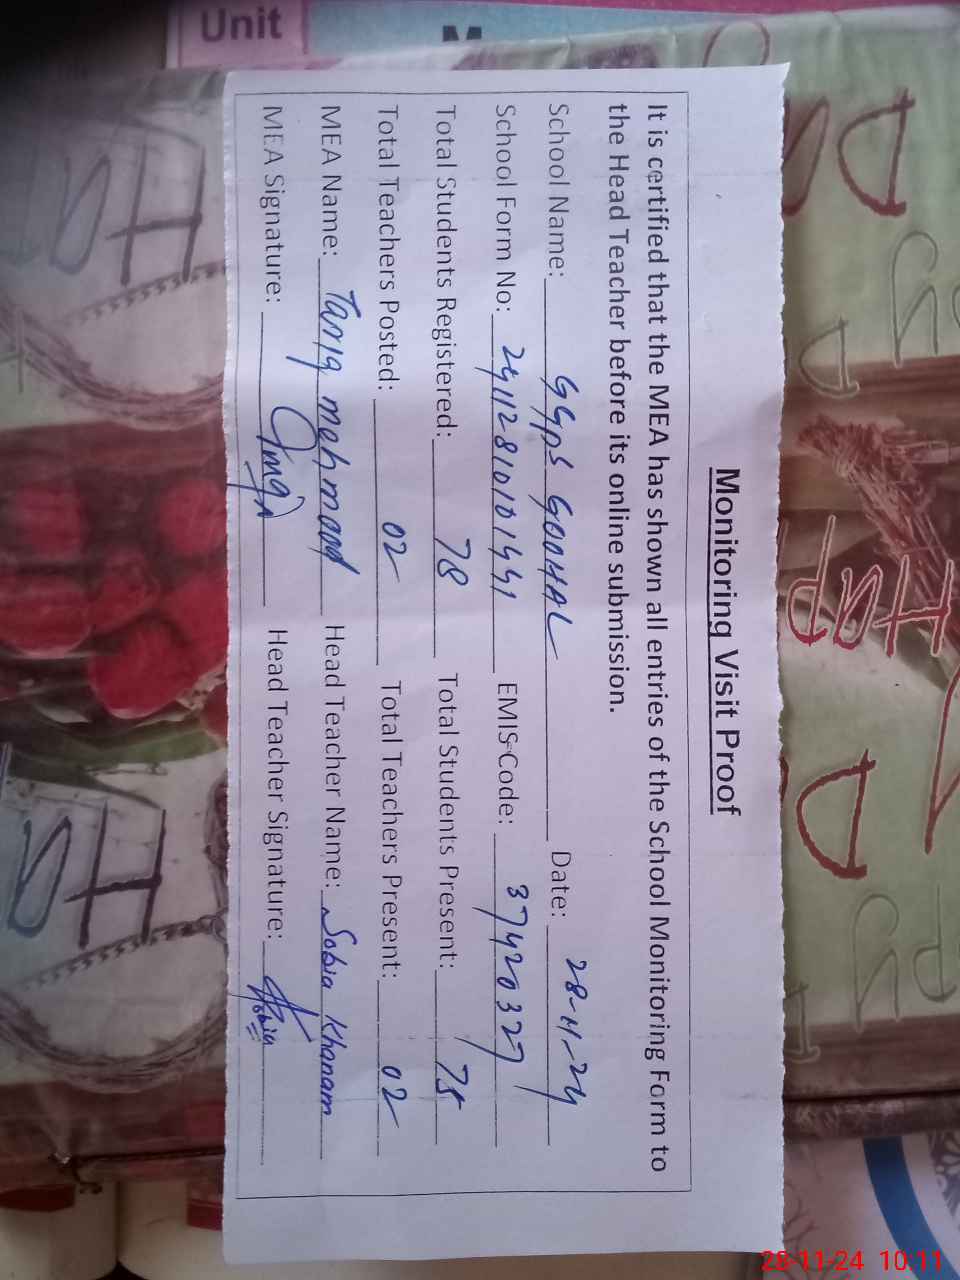 Unit
Monitoring Visit Proof
It is certified that the MEA has shown all entries of the School Monitoring Form to
the Head Teacher before its online submission.
School Name: GGPS GOOHAL Date: 28-11-24
School Form No: 24112810101441 EMIS Code: 37420327
Total Students Registered: 78 Total Students Present: 75
Total Teachers Posted: 02 Total Teachers Present: 02
MEA Name: Tariq mehmood Head Teacher Name: Sobia Khanam
MEA Signature: Head Teacher Signature: Sobia
28-11-24 10:11